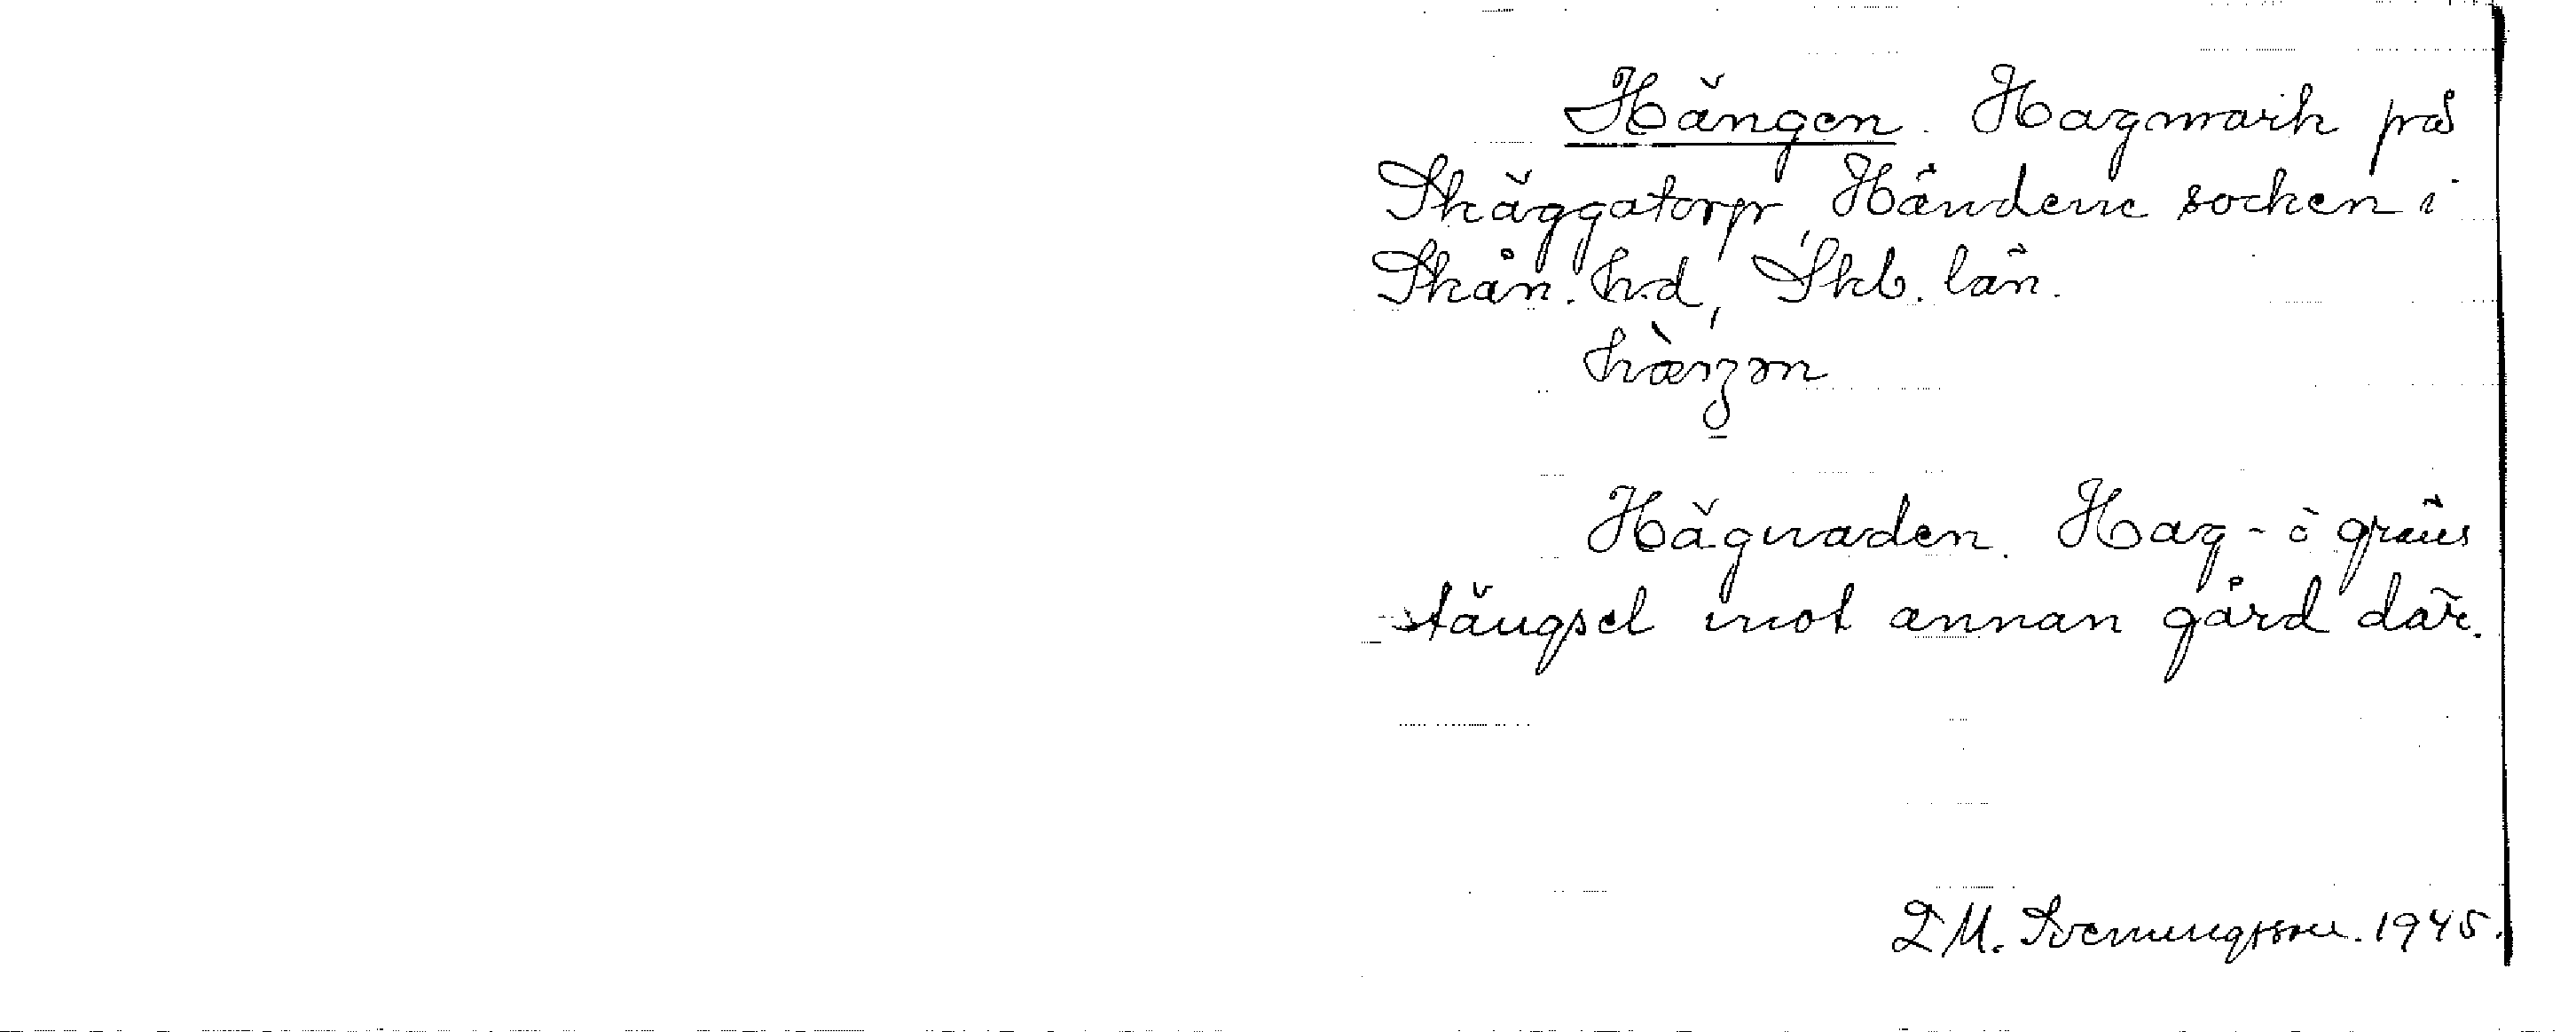 Hängen. Hagmark på
Skäggatorp, Händene socken i
Skån. hd, Skb. län.
hæŋən
Hägnaden. Hag- o gräns
stängsel mot annan gård där.
D M. Svenungsson. 1945.